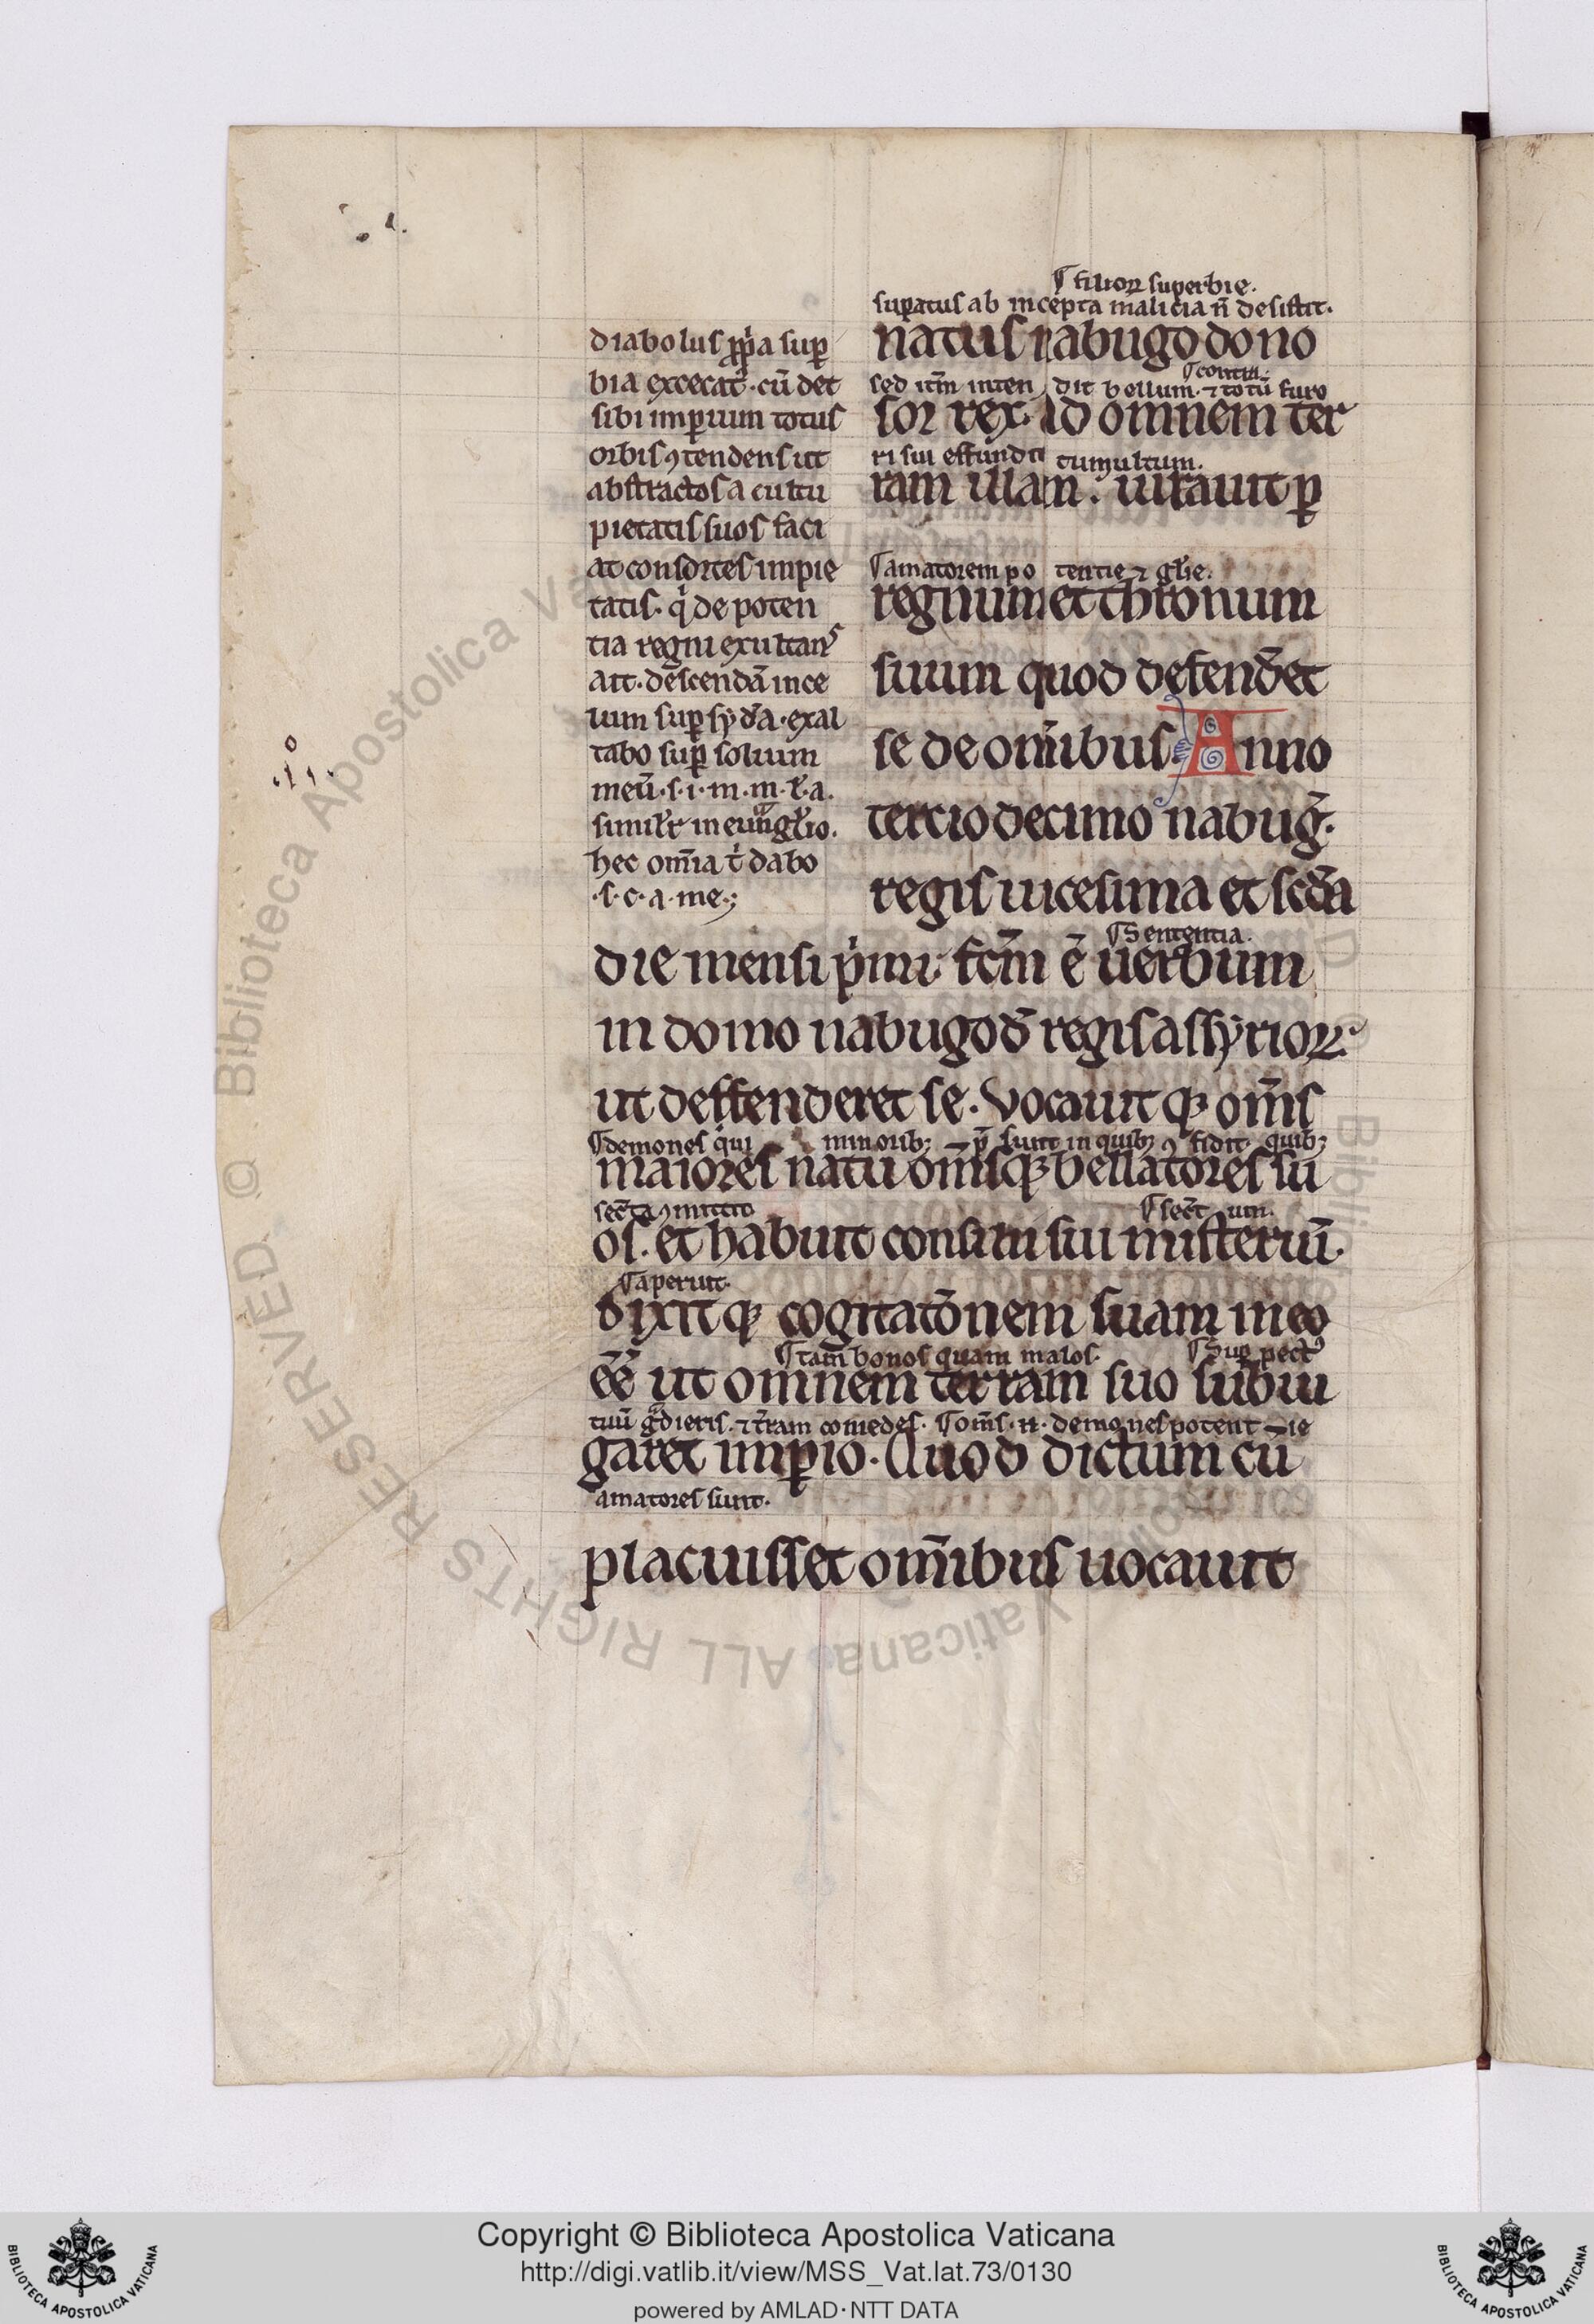 diabolus ꝓpͥa suꝑ
bia excecatꝰ · cū det
sibi imꝑium totius
orbis ꝯtendens ut
abstractos a cultu
pietatis suos faci
at consortes impie
tatis · qͥ de poten
tia regni exultans
ait · descendā in ce
lum suꝑ sydͤa · exal
tabo suꝑ solium
meū · s · i · m · m · t̄ · a ·
similr̄ in euuͣgl̄io ·
hec om̄ia tͥ dabo
· s · c · a · me ·;
¶ filioꝝ superbie ·
suꝑatus ab incepta malicia n̄ desistit ·
natus nabugodono
¶ contra ·
sed itm̄ inten dit bellum · ⁊ totū furo
sor rex · ad omnem ter
ri sui effundit tumultum ·
ram illam · iurauit ꝑ
¶ amatorem po tentie ⁊ gl̄ie ·
regnum et thronum
suum quod defendͤet
se de om̄ibus · Anno
tercio decimo nabuḡ ·
regis uicesima et scd̄a
¶ Sententia ·
die mensi pͥmi · fc̄m ē uerbum
in domo nabugod̄ regis assyrioꝝ ·
ut deffenderet se · Vocauitqꝫ om̄s
¶ demones qui minoribꝫ p̄ sunt in quibꝫ ꝯfidit · quibꝫ
maiores natu om̄sqꝫ bellatores su
secͤta ꝯmittit ¶ secͤtum ·
os · et habuit consilii sui misteriū ·
¶ aperuit ·
dixitqꝫ cogitatōnem suam in eo
¶ tam bonos quam malos · ¶ Suꝑ pectꝰ
ēē ut omnem terram suo subiu
tuū gͣdieris · ⁊ tͤram comedes · ¶ om̄s · n · demones potent ie
garet imꝑio · Quod dictum cū
amatores sunt ·
placuisset om̄ibus uocauit
Copyright © Biblioteca Apostolica Vaticana
http://digi.vatlib.it/view/MSS_Vat.lat.73/0130
powered by AMLAD·NTT DATA
BIBLIOTECA APOSTOLICA VATICANA
BIBLIOTECA APOSTOLICA VATICANA